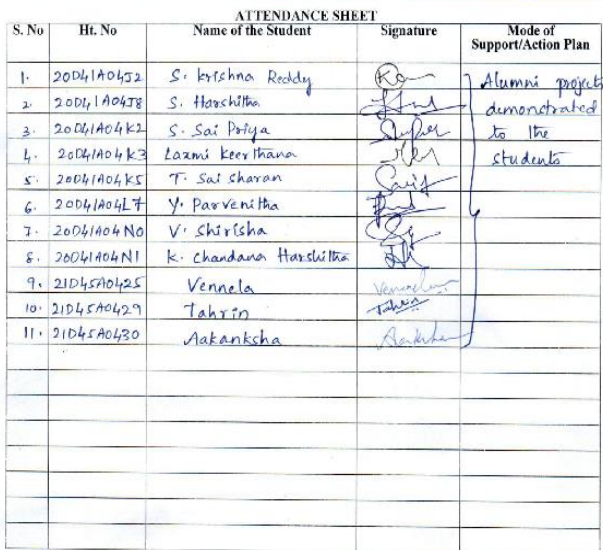 ATTENDANCE SHEET
S. No Ht. No Name of the Student Signature Mode of Support/Action Plan
1. 20D41A04J2 S. Krishna Reddy Alumni projects
2. 20D41A04J8 S. Harshitha demonstrated
3. 20D41A04K2 S. Sai Priya to the
4. 20D41A04K3 Laxmi Keerthana students
5. 20D41A04K5 T. Sai Sharan
6. 20D41A04L7 Y. Parvenitha
7. 20D41A04N0 V. Shirisha
8. 20D41A04N1 K. Chandana Harshitha
9. 21D45A0425 Vennela Vennela
10. 21D45A0429 Tahrin Tahrin
11. 21D45A0430 Aakanksha